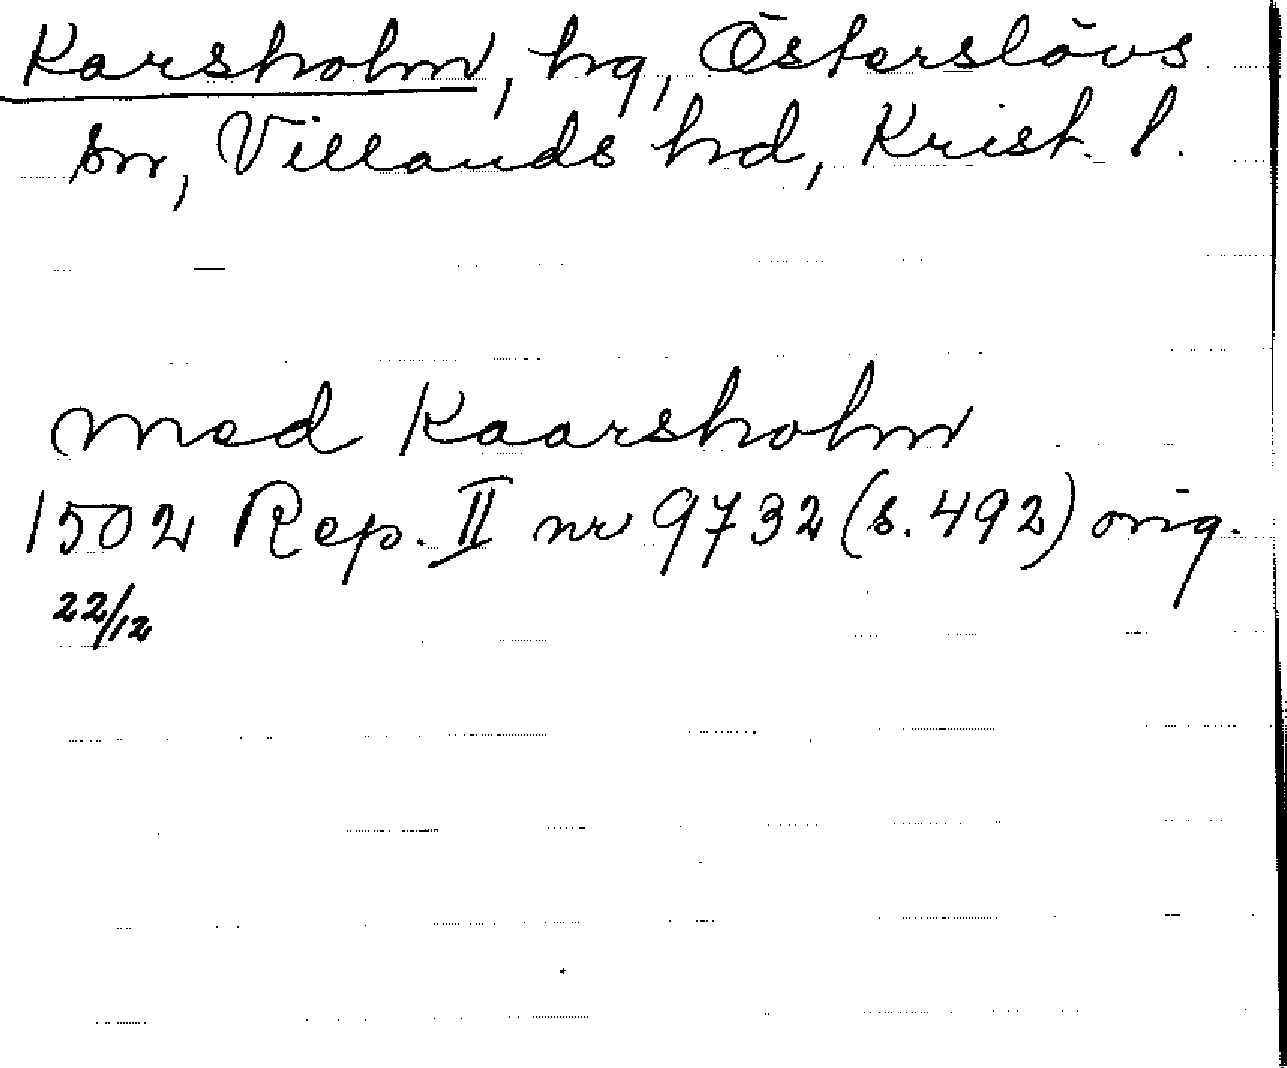 Karsholm, hg, Österslövs
sn, Villands hd, Krist. l.
med Kaarsholm
1502 Rep. II nr 9732 (s. 492) orig.
22/12